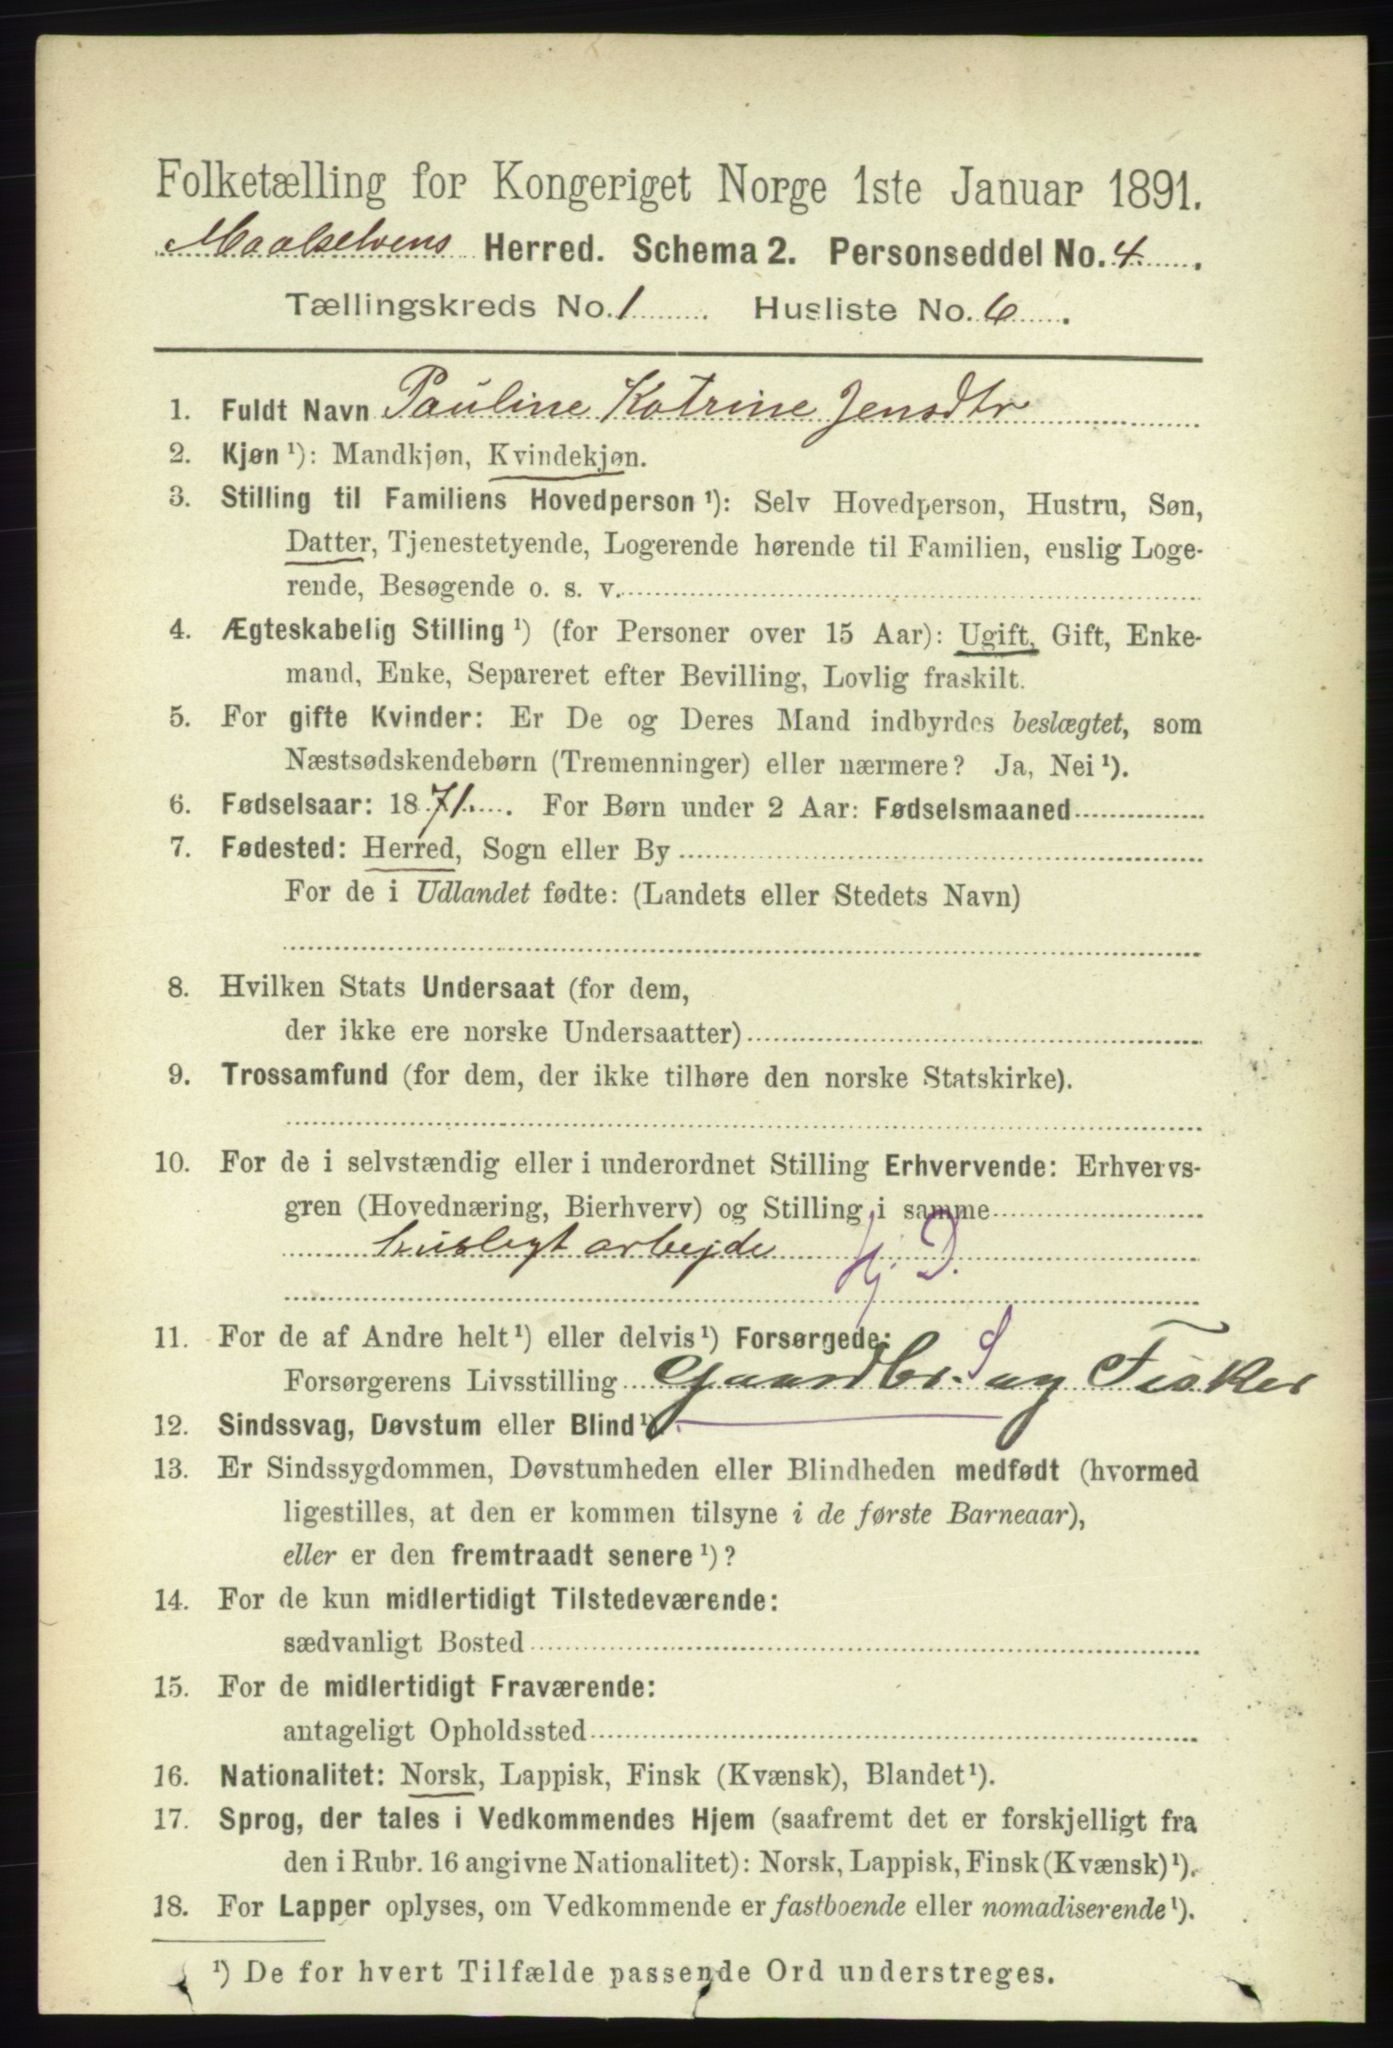 Folketælling for Kongeriget Norge 1ste Januar 1891.
Maalselvens Herred. Schema 2. Personseddel No. 4.
Tællingskreds No. 1. Husliste No. 6.
1. Fuldt Navn Pauline Katrine Jensdtr
2. Kjøn ¹): Mandkjøn, Kvindekjøn.
3. Stilling til Familiens Hovedperson ¹): Selv Hovedperson, Hustru, Søn,
Datter, Tjenestetyende, Logerende hørende til Familien, enslig Loge-
rende, Besøgende o. s. v.
4. Ægteskabelig Stilling ¹) (for Personer over 15 Aar): Ugift, Gift, Enke-
mand, Enke, Separeret efter Bevilling, Lovlig fraskilt.
5. For gifte Kvinder: Er De og Deres Mand indbyrdes beslægtet, som
Næstsødskendebørn (Tremenninger) eller nærmere? Ja, Nei ¹).
6. Fødselsaar: 1871. For Børn under 2 Aar: Fødselsmaaned
7. Fødested: Herred, Sogn eller By
For de i Udlandet fødte: (Landets eller Stedets Navn)
8. Hvilken Stats Undersaat (for dem,
der ikke ere norske Undersaatter)
9. Trossamfund (for dem, der ikke tilhøre den norske Statskirke).
10. For de i selvstændig eller i underordnet Stilling Erhvervende: Erhvervs-
gren (Hovednæring, Bierhverv) og Stilling i samme
husligt arbejde Hj. D.
11. For de af Andre helt ¹) eller delvis ¹) Forsørgede:
Forsørgerens Livsstilling Gaardbr. og Fisker
12. Sindssvag, Døvstum eller Blind ¹).
13. Er Sindssygdommen, Døvstumheden eller Blindheden medfødt (hvormed
ligestilles, at den er kommen tilsyne i de første Barneaar),
eller er den fremtraadt senere ¹)?
14. For de kun midlertidigt Tilstedeværende:
sædvanligt Bosted
15. For de midlertidigt Fraværende:
antageligt Opholdssted
16. Nationalitet: Norsk, Lappisk, Finsk (Kvænsk), Blandet ¹).
17. Sprog, der tales i Vedkommendes Hjem (saafremt det er forskjelligt fra
den i Rubr. 16 angivne Nationalitet): Norsk, Lappisk, Finsk (Kvænsk) ¹).
18. For Lapper oplyses, om Vedkommende er fastboende eller nomadiserende ¹).
¹) De for hvert Tilfælde passende Ord understreges.